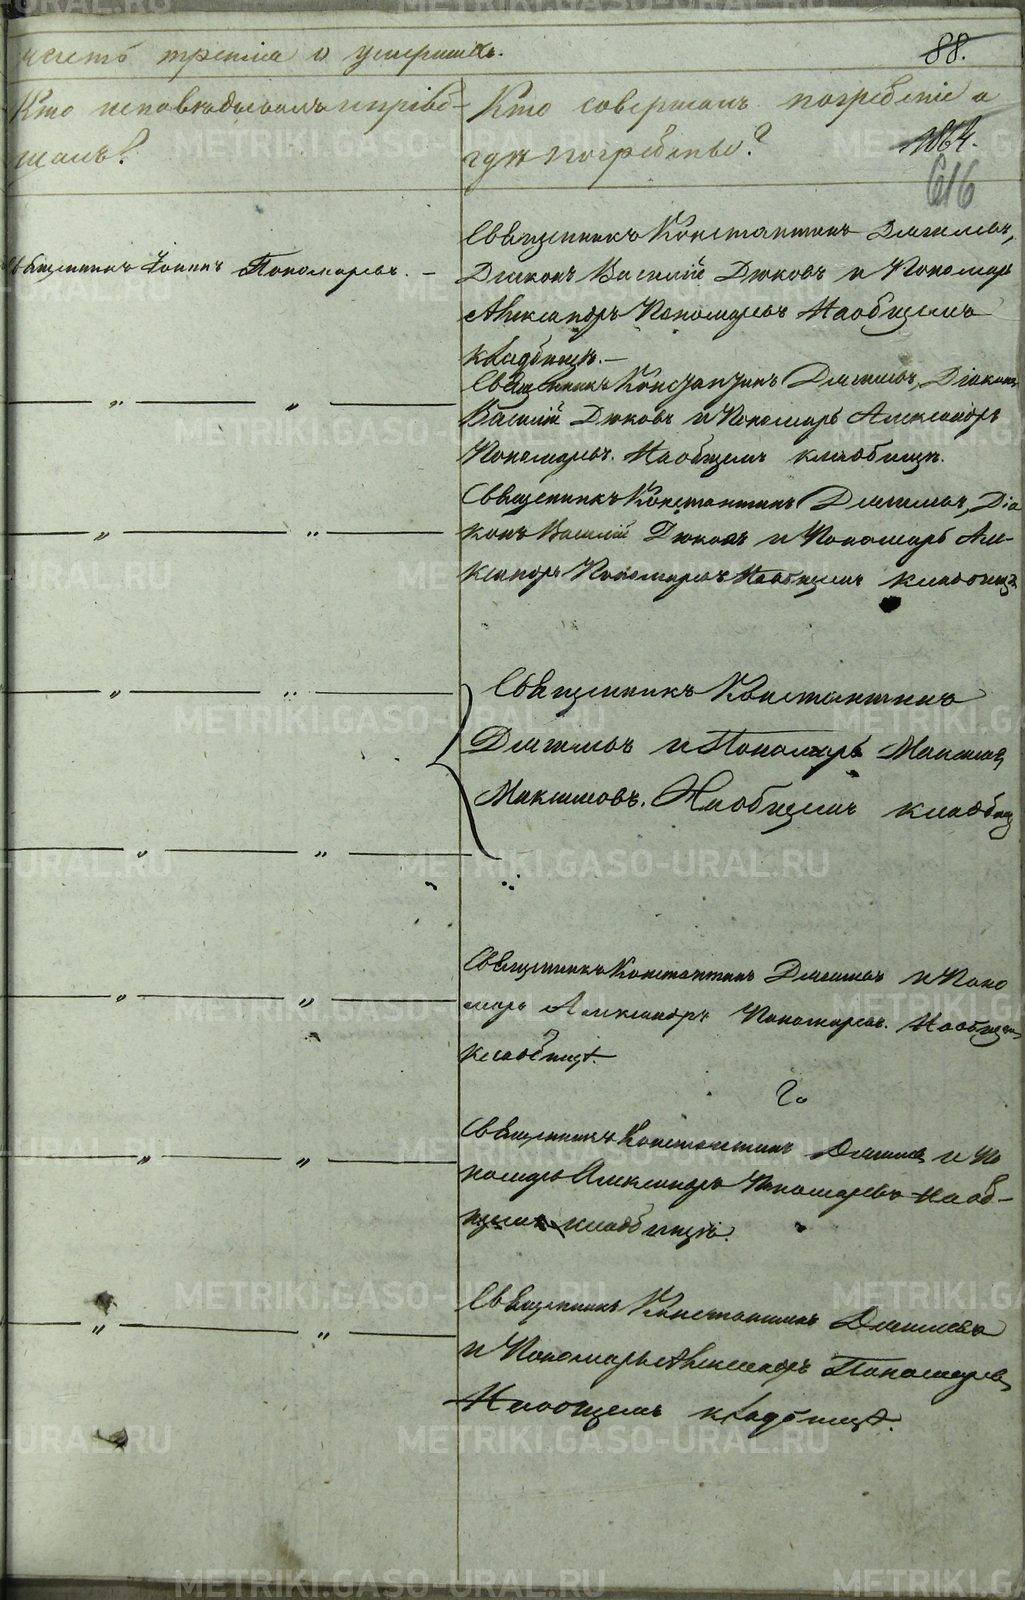 часть третья о умершихъ.
88.
Кто исповѣдывалъ и пріоб-
щалъ?
Кто совершалъ погребеніе и
гдѣ погребены?
1864.
616
Священникъ Іоаннъ Пономаревъ. —
Священникъ Константинъ
Діаконъ Василій Дюковъ и Пономарь
Александръ Пономаревъ На общемъ
кладбищѣ. —
Священникъ Константинъ Діаконъ
Василій Дюковъ и Пономарь Александръ
Пономаревъ. На общемъ кладбищѣ.
Священникъ Константинъ Діа
конъ Василій Дюковъ и Пономарь Але-
ксандръ Пономаревъ На общемъ кладбищѣ
Священникъ Константинъ
и Пономарь
Максимовъ. На общемъ кладбищ
Священникъ Константинъ и Поно
марь Александръ Пономаревъ. На общемъ
кладбищѣ.
Священникъ Константинъ и По
номарь Александръ Пономаревъ На об-
щемъ кладбищѣ.
Священникъ Константинъ
и Пономарь Александръ Пономаревъ
На общемъ кладбищѣ.
METRIKI.GASO-URAL.RU